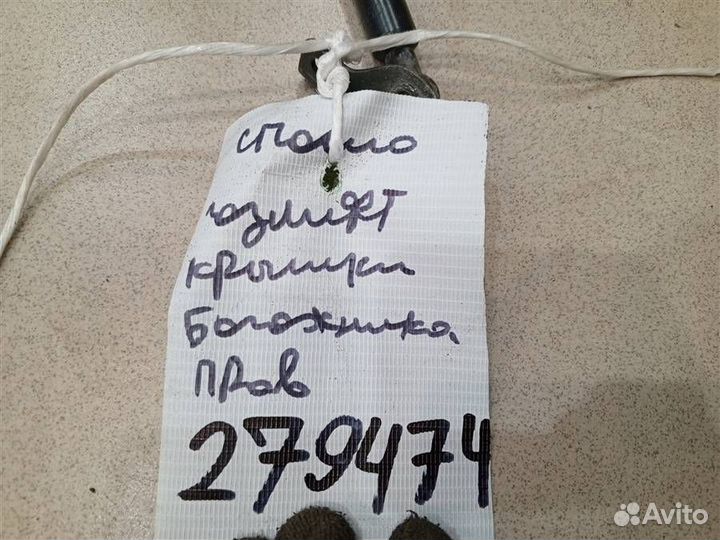 спасио
газлифт
крышки
богожника
прав
279474
Avito